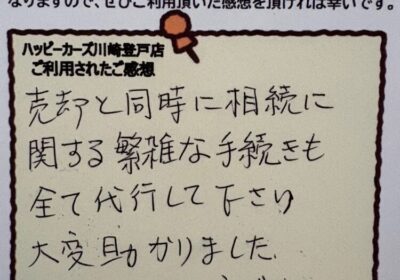 なりますので、ぜひご利用頂いた感想を頂ければ幸いです。
ハッピーカーズ川崎登戸店
ご利用されたご感想
売却と同時に相続に
関する繁雑な手続きも
全て代行して下さい
大変助かりました